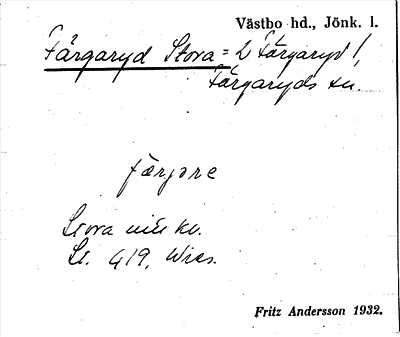 Västbo hd., Jönk. l.
Färgaryd Stora = 2 Färgaryd!,
Färgaryds sn.
färjare
Stora
419.
Fritz Andersson 1932.